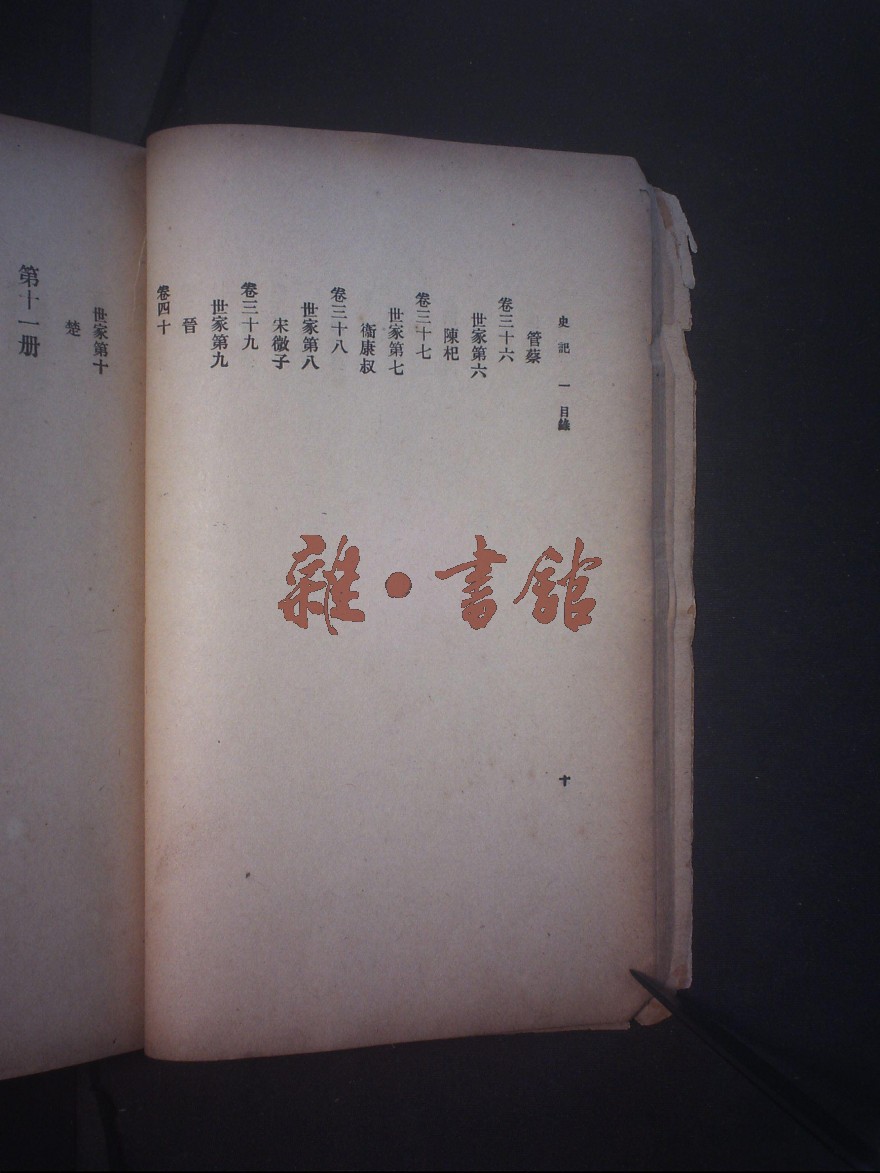 史記 一 目錄
管蔡
卷三十六
世家第六
陳杞
卷三十七
世家第七
衞康叔
卷三十八
世家第八
宋微子
卷三十九
世家第九
晉
卷四十
十
世家第十
楚
第十一册
雜·書館